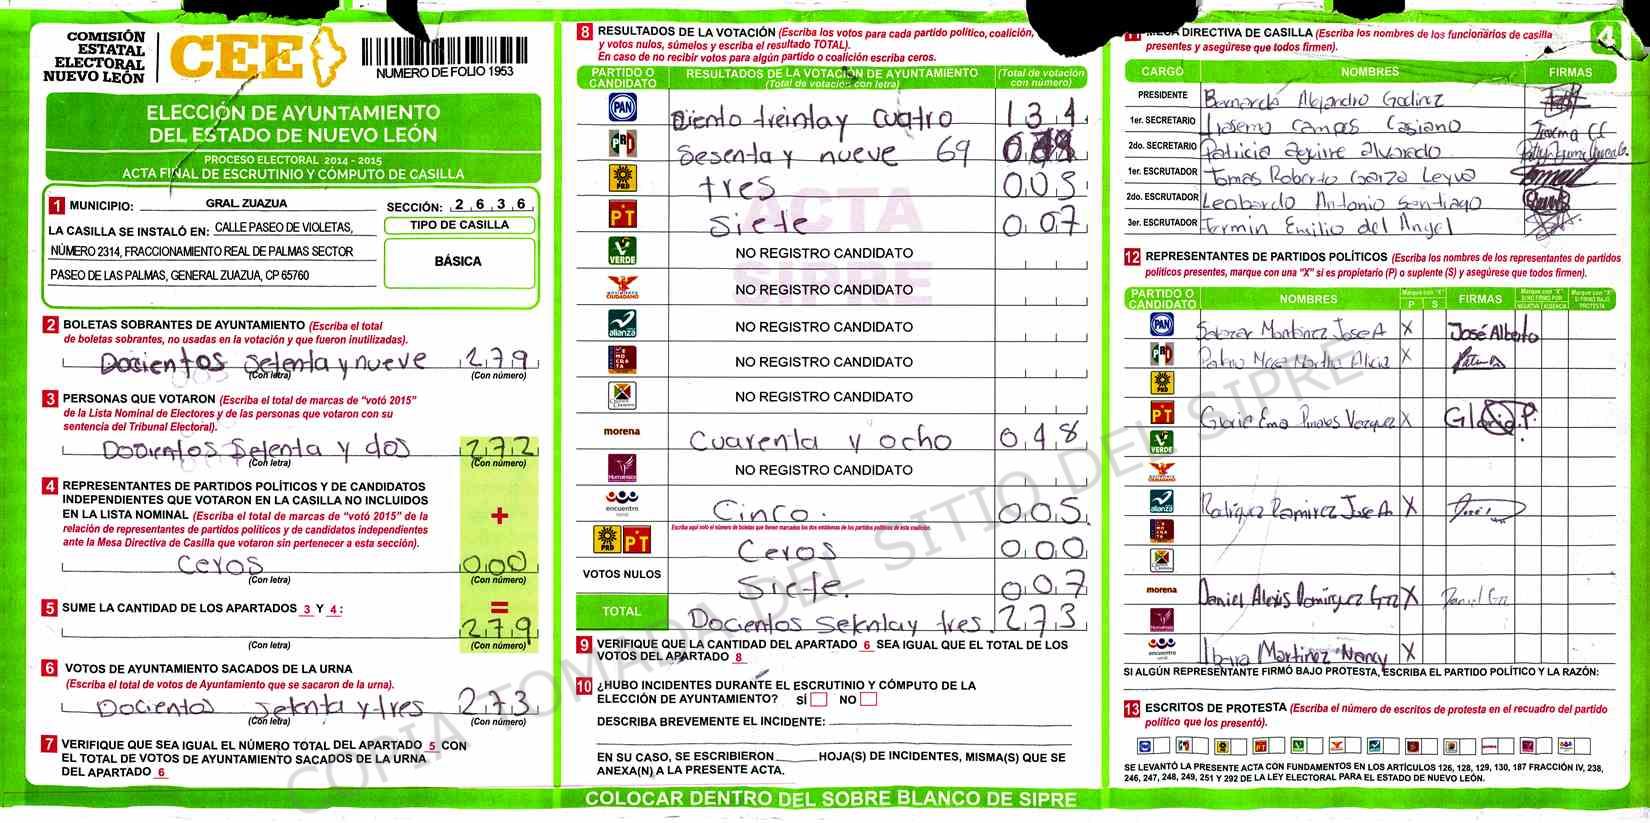 COMISIÓN
ESTATAL
ELECTORAL
NUEVO LEÓN
CEE
NUMERO DE FOLIO 1953
ELECCIÓN DE AYUNTAMIENTO
DEL ESTADO DE NUEVO LEÓN
PROCESO ELECTORAL 2014 - 2015
ACTA FINAL DE ESCRUTINIO Y CÓMPUTO DE CASILLA
1 MUNICIPIO: GRAL ZUAZUA SECCIÓN: 2 6 3 6
LA CASILLA SE INSTALÓ EN: CALLE PASEO DE VIOLETAS,
NÚMERO 2314, FRACCIONAMIENTO REAL DE PALMAS SECTOR
PASEO DE LAS PALMAS, GENERAL ZUAZUA, CP 65760
TIPO DE CASILLA
BÁSICA
2 BOLETAS SOBRANTES DE AYUNTAMIENTO (Escriba el total
de boletas sobrantes, no usadas en la votación y que fueron inutilizadas).
Docientos setenta y nueve 2 7 9
(Con letra) (Con número)
3 PERSONAS QUE VOTARON (Escriba el total de marcas de "votó 2015"
de la Lista Nominal de Electores y de las personas que votaron con su
sentencia del Tribunal Electoral).
Docientos Setenta y dos 2 7 2
(Con letra) (Con número)
4 REPRESENTANTES DE PARTIDOS POLÍTICOS Y DE CANDIDATOS
INDEPENDIENTES QUE VOTARON EN LA CASILLA NO INCLUIDOS
EN LA LISTA NOMINAL (Escriba el total de marcas de "votó 2015" de la
relación de representantes de partidos políticos y de candidatos independientes
ante la Mesa Directiva de Casilla que votaron sin pertenecer a esta sección).
+
Ceros 0 0 0
(Con letra) (Con número)
5 SUME LA CANTIDAD DE LOS APARTADOS 3 Y 4 :
=
2 7 9
(Con letra) (Con número)
6 VOTOS DE AYUNTAMIENTO SACADOS DE LA URNA
(Escriba el total de votos de Ayuntamiento que se sacaron de la urna).
Docientos setenta y tres 2 7 3
(Con letra) (Con número)
7 VERIFIQUE QUE SEA IGUAL EL NÚMERO TOTAL DEL APARTADO 5 CON
EL TOTAL DE VOTOS DE AYUNTAMIENTO SACADOS DE LA URNA
DEL APARTADO 6
8 RESULTADOS DE LA VOTACIÓN (Escriba los votos para cada partido político, coalición,
y votos nulos, súmelos y escriba el resultado TOTAL).
En caso de no recibir votos para algún partido o coalición escriba ceros.
PARTIDO O CANDIDATO RESULTADOS DE LA VOTACIÓN DE AYUNTAMIENTO (Total de votación con letra) (Total de votación con número)
PAN Ciento treinta y cuatro 1 3 4
PRD Sesenta y nueve 69
PRD tres 0 0 3
PT Siete 0 0 7
VERDE NO REGISTRO CANDIDATO
MOVIMIENTO CIUDADANO NO REGISTRO CANDIDATO
alianza NO REGISTRO CANDIDATO
NO REGISTRO CANDIDATO
NO REGISTRO CANDIDATO
morena Cuarenta y ocho 0 4 8
Humanista NO REGISTRO CANDIDATO
encuentro social Cinco. 0 0 5
Escriba aquí solo el número de boletas que tienen marcados los dos emblemas de los partidos políticos de esta coalición.
PRD PT Ceros 0 0 0
VOTOS NULOS Siete. 0 0 7
TOTAL Docientos Setenta y tres. 2 7 3
ACTA
SIPRE
9 VERIFIQUE QUE LA CANTIDAD DEL APARTADO 6 SEA IGUAL QUE EL TOTAL DE LOS
VOTOS DEL APARTADO 8
10 ¿HUBO INCIDENTES DURANTE EL ESCRUTINIO Y CÓMPUTO DE LA
ELECCIÓN DE AYUNTAMIENTO? SÍ NO
DESCRIBA BREVEMENTE EL INCIDENTE:
EN SU CASO, SE ESCRIBIERON HOJA(S) DE INCIDENTES, MISMA(S) QUE SE
ANEXA(N) A LA PRESENTE ACTA.
COLOCAR DENTRO DEL SOBRE BLANCO DE SIPRE
4
DIRECTIVA DE CASILLA (Escriba los nombres de los funcionarios de casilla
presentes y asegúrese que todos firmen).
CARGO NOMBRES FIRMAS
PRESIDENTE Bernardo Alejandro Godinez
1er. SECRETARIO Campos Casiano
2do. SECRETARIO Patricia aguirre alvarado
1er. ESCRUTADOR Tomas Roberto Garza Leyva
2do. ESCRUTADOR Leobardo Antonio Santiago
3er. ESCRUTADOR Fermin Emilio del Angel
12 REPRESENTANTES DE PARTIDOS POLÍTICOS (Escriba los nombres de los representantes de partidos
políticos presentes, marque con una "X" si es propietario (P) o suplente (S) y asegúrese que todos firmen).
PARTIDO O CANDIDATO NOMBRES Marque con "X" P S FIRMAS Marque con "X" SI NO FIRMÓ POR NEGATIVA AUSENCIA Marque con "X" SI FIRMÓ BAJO PROTESTA
PAN Salazar Martinez Jose A X José Alberto
Martha Alicia X
PRD
PT Gloria Ema Vazquez X Gloria P.
VERDE
alianza Rodriguez Ramirez Jose A X
morena Daniel Alexis Dominguez Grz X Daniel Grz
encuentro social Ibarra Martinez Nancy X
SI ALGÚN REPRESENTANTE FIRMÓ BAJO PROTESTA, ESCRIBA EL PARTIDO POLÍTICO Y LA RAZÓN:
13 ESCRITOS DE PROTESTA (Escriba el número de escritos de protesta en el recuadro del partido
político que los presentó).
SE LEVANTÓ LA PRESENTE ACTA CON FUNDAMENTOS EN LOS ARTÍCULOS 126, 128, 129, 130, 187 FRACCIÓN IV, 238,
246, 247, 248, 249, 251 Y 292 DE LA LEY ELECTORAL PARA EL ESTADO DE NUEVO LEÓN.
COPIA TOMADA DEL SITIO DEL SIPRE